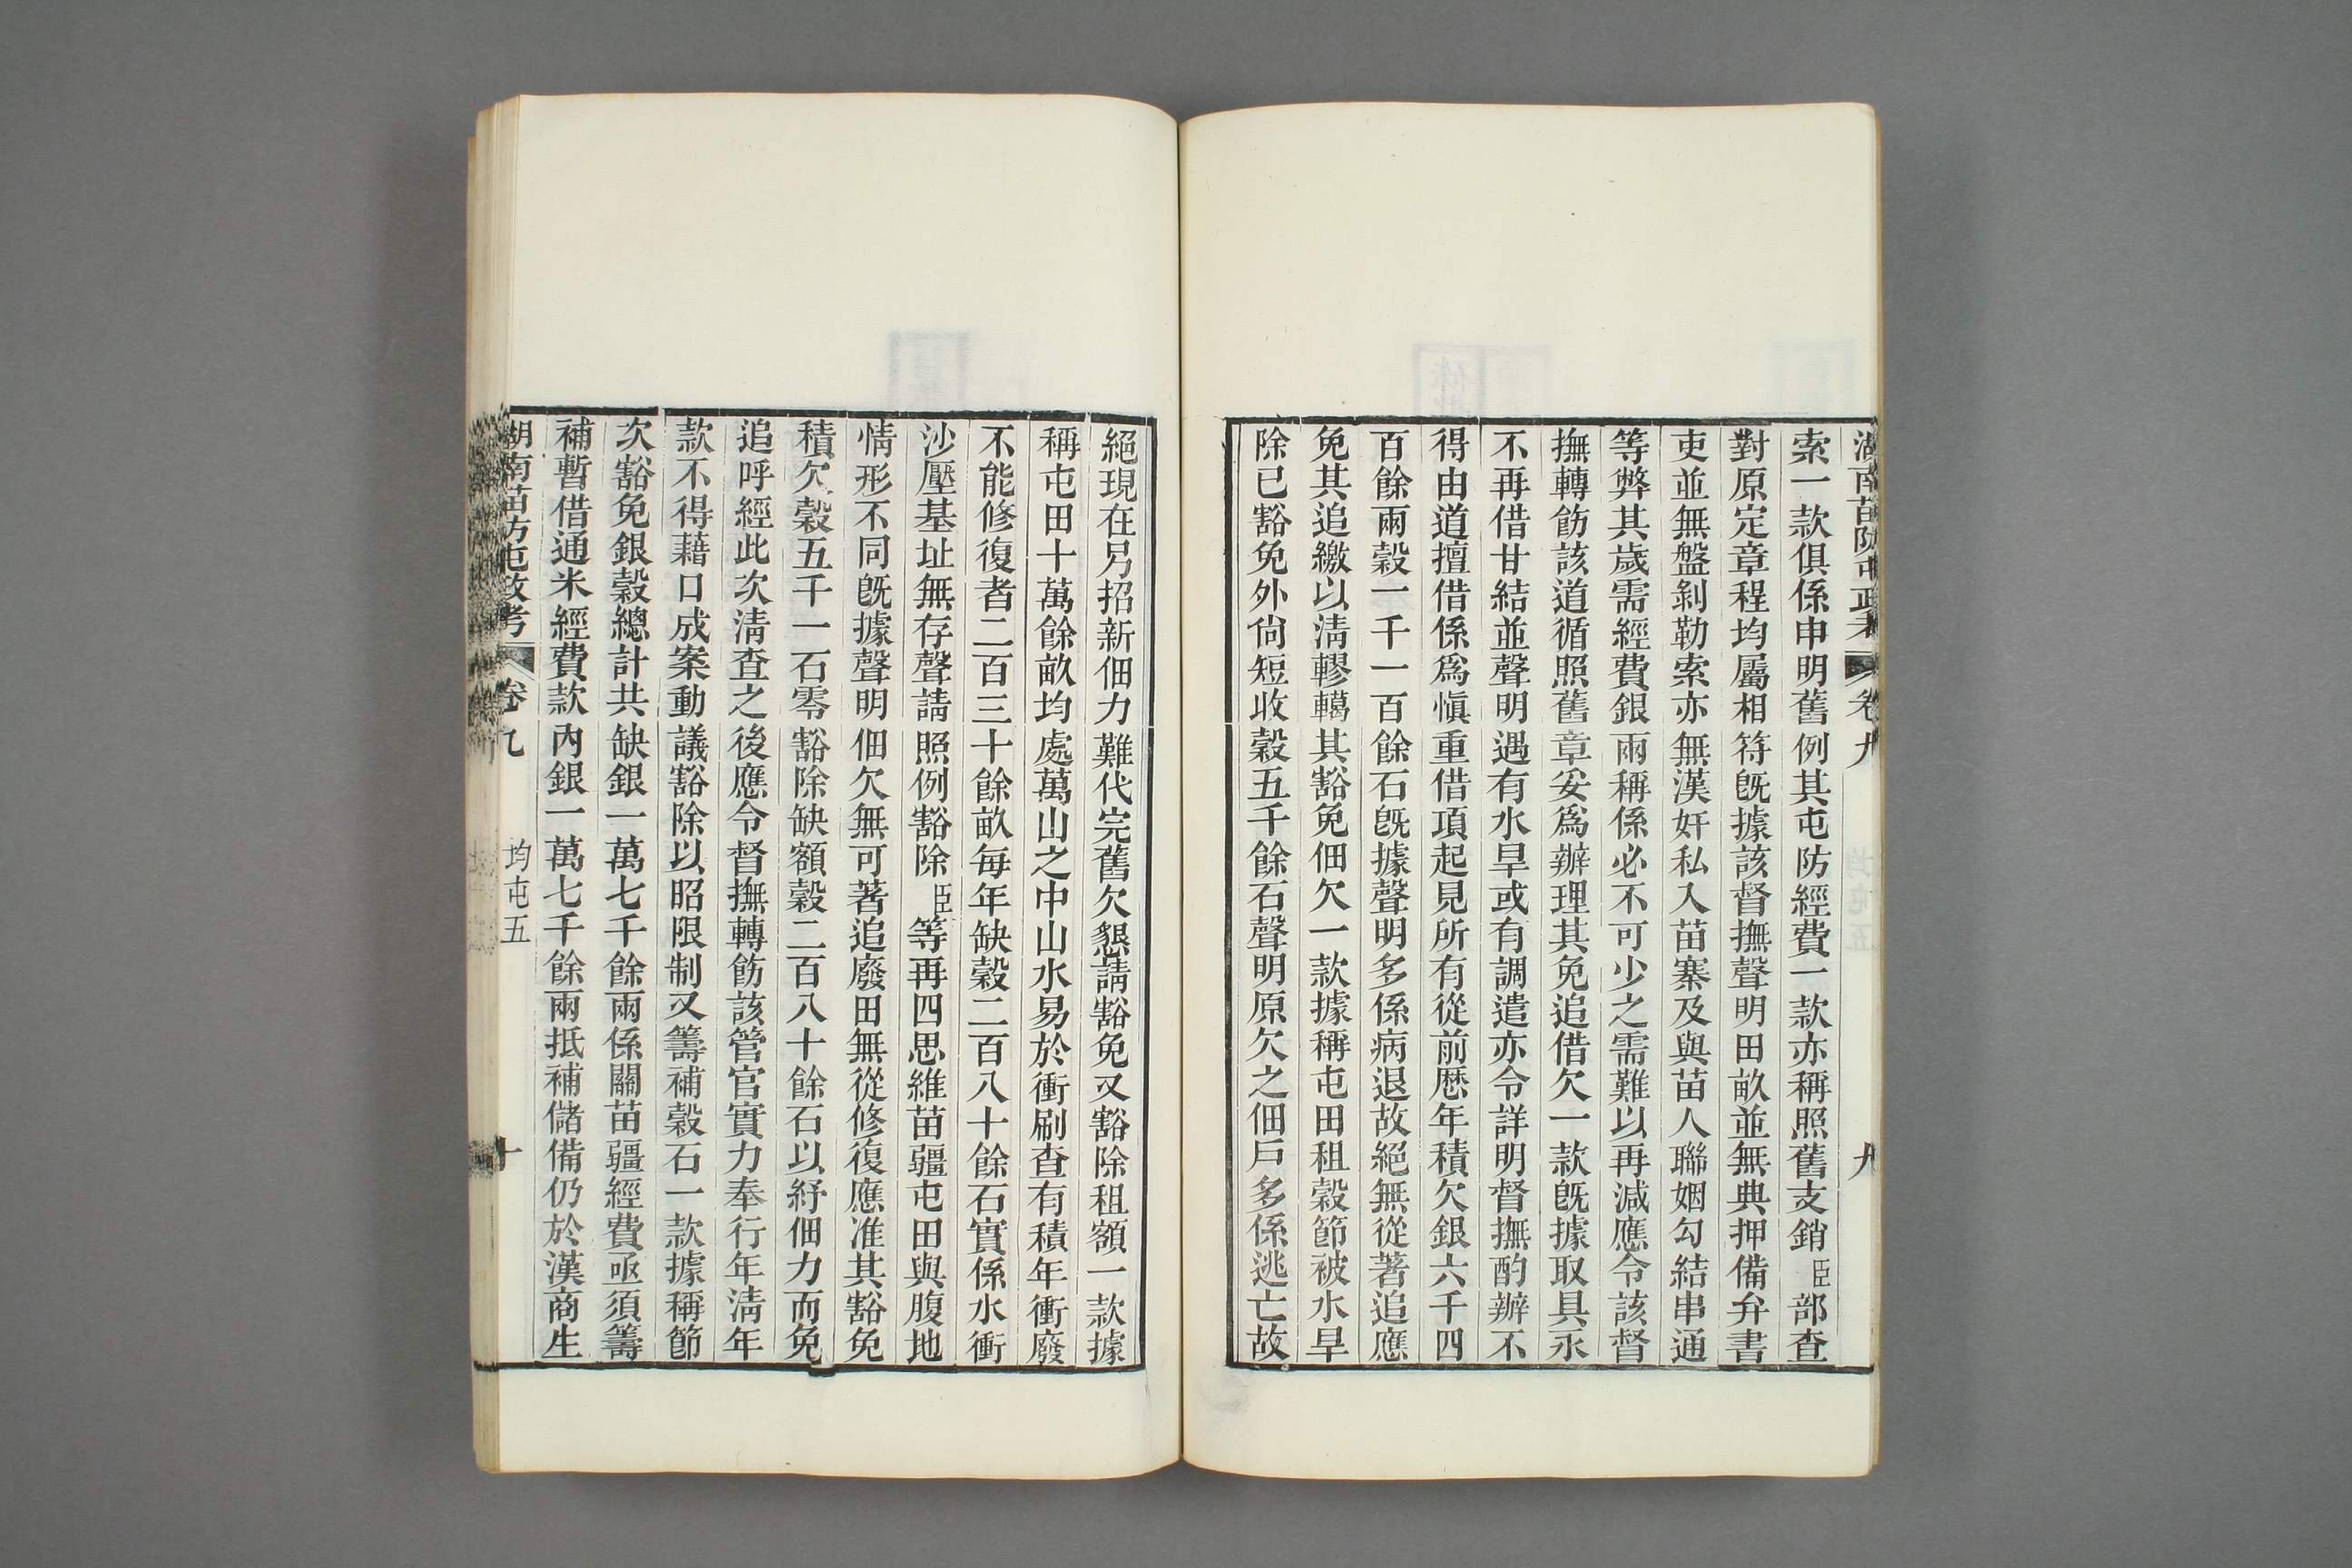 湖南苗防屯政考 卷九 九
索一款俱係申明舊例其屯防經費一款亦稱照舊支銷臣部查
對原定章程均屬相符旣據該督撫聲明田畝並無典押備弁書
吏並無盤剝勒索亦無漢奸私入苗寨及與苗人聯姻勾結串通
等弊其歲需經費銀兩稱係必不可少之需難以再減應令該督
撫轉飭該道循照舊章妥爲辦理其免追借欠一款旣據取具永
不再借甘結並聲明遇有水旱或有調遣亦令詳明督撫酌辦不
得由道擅借係爲愼重借項起見所有從前歷年積欠銀六千四
百餘兩穀一千一百餘石旣據聲明多係病退故絕無從著追應
免其追繳以淸轇轕其豁免佃欠一款據稱屯田租穀節被水旱
除已豁免外尙短收穀五千餘石聲明原欠之佃戶多係逃亡故
絕現在另招新佃力難代完舊欠懇請豁免又豁除租額一款據
稱屯田十萬餘畝均處萬山之中山水易於衝刷查有積年衝廢
不能修復者二百三十餘畝每年缺穀二百八十餘石實係水衝
沙壓基址無存聲請照例豁除臣等再四思維苗疆屯田與腹地
情形不同旣據聲明佃欠無可著追廢田無從修復應准其豁免
積欠穀五千一石零豁除缺額穀二百八十餘石以紓佃力而免
追呼經此次淸查之後應令督撫轉飭該管官實力奉行年淸年
款不得藉口成案動議豁除以昭限制又籌補穀石一款據稱節
次豁免銀穀總計共缺銀一萬七千餘兩係關苗疆經費亟須籌
補暫借通米經費款內銀一萬七千餘兩抵補儲備仍於漢商生
湖南苗防屯政考 卷九 均屯五 十